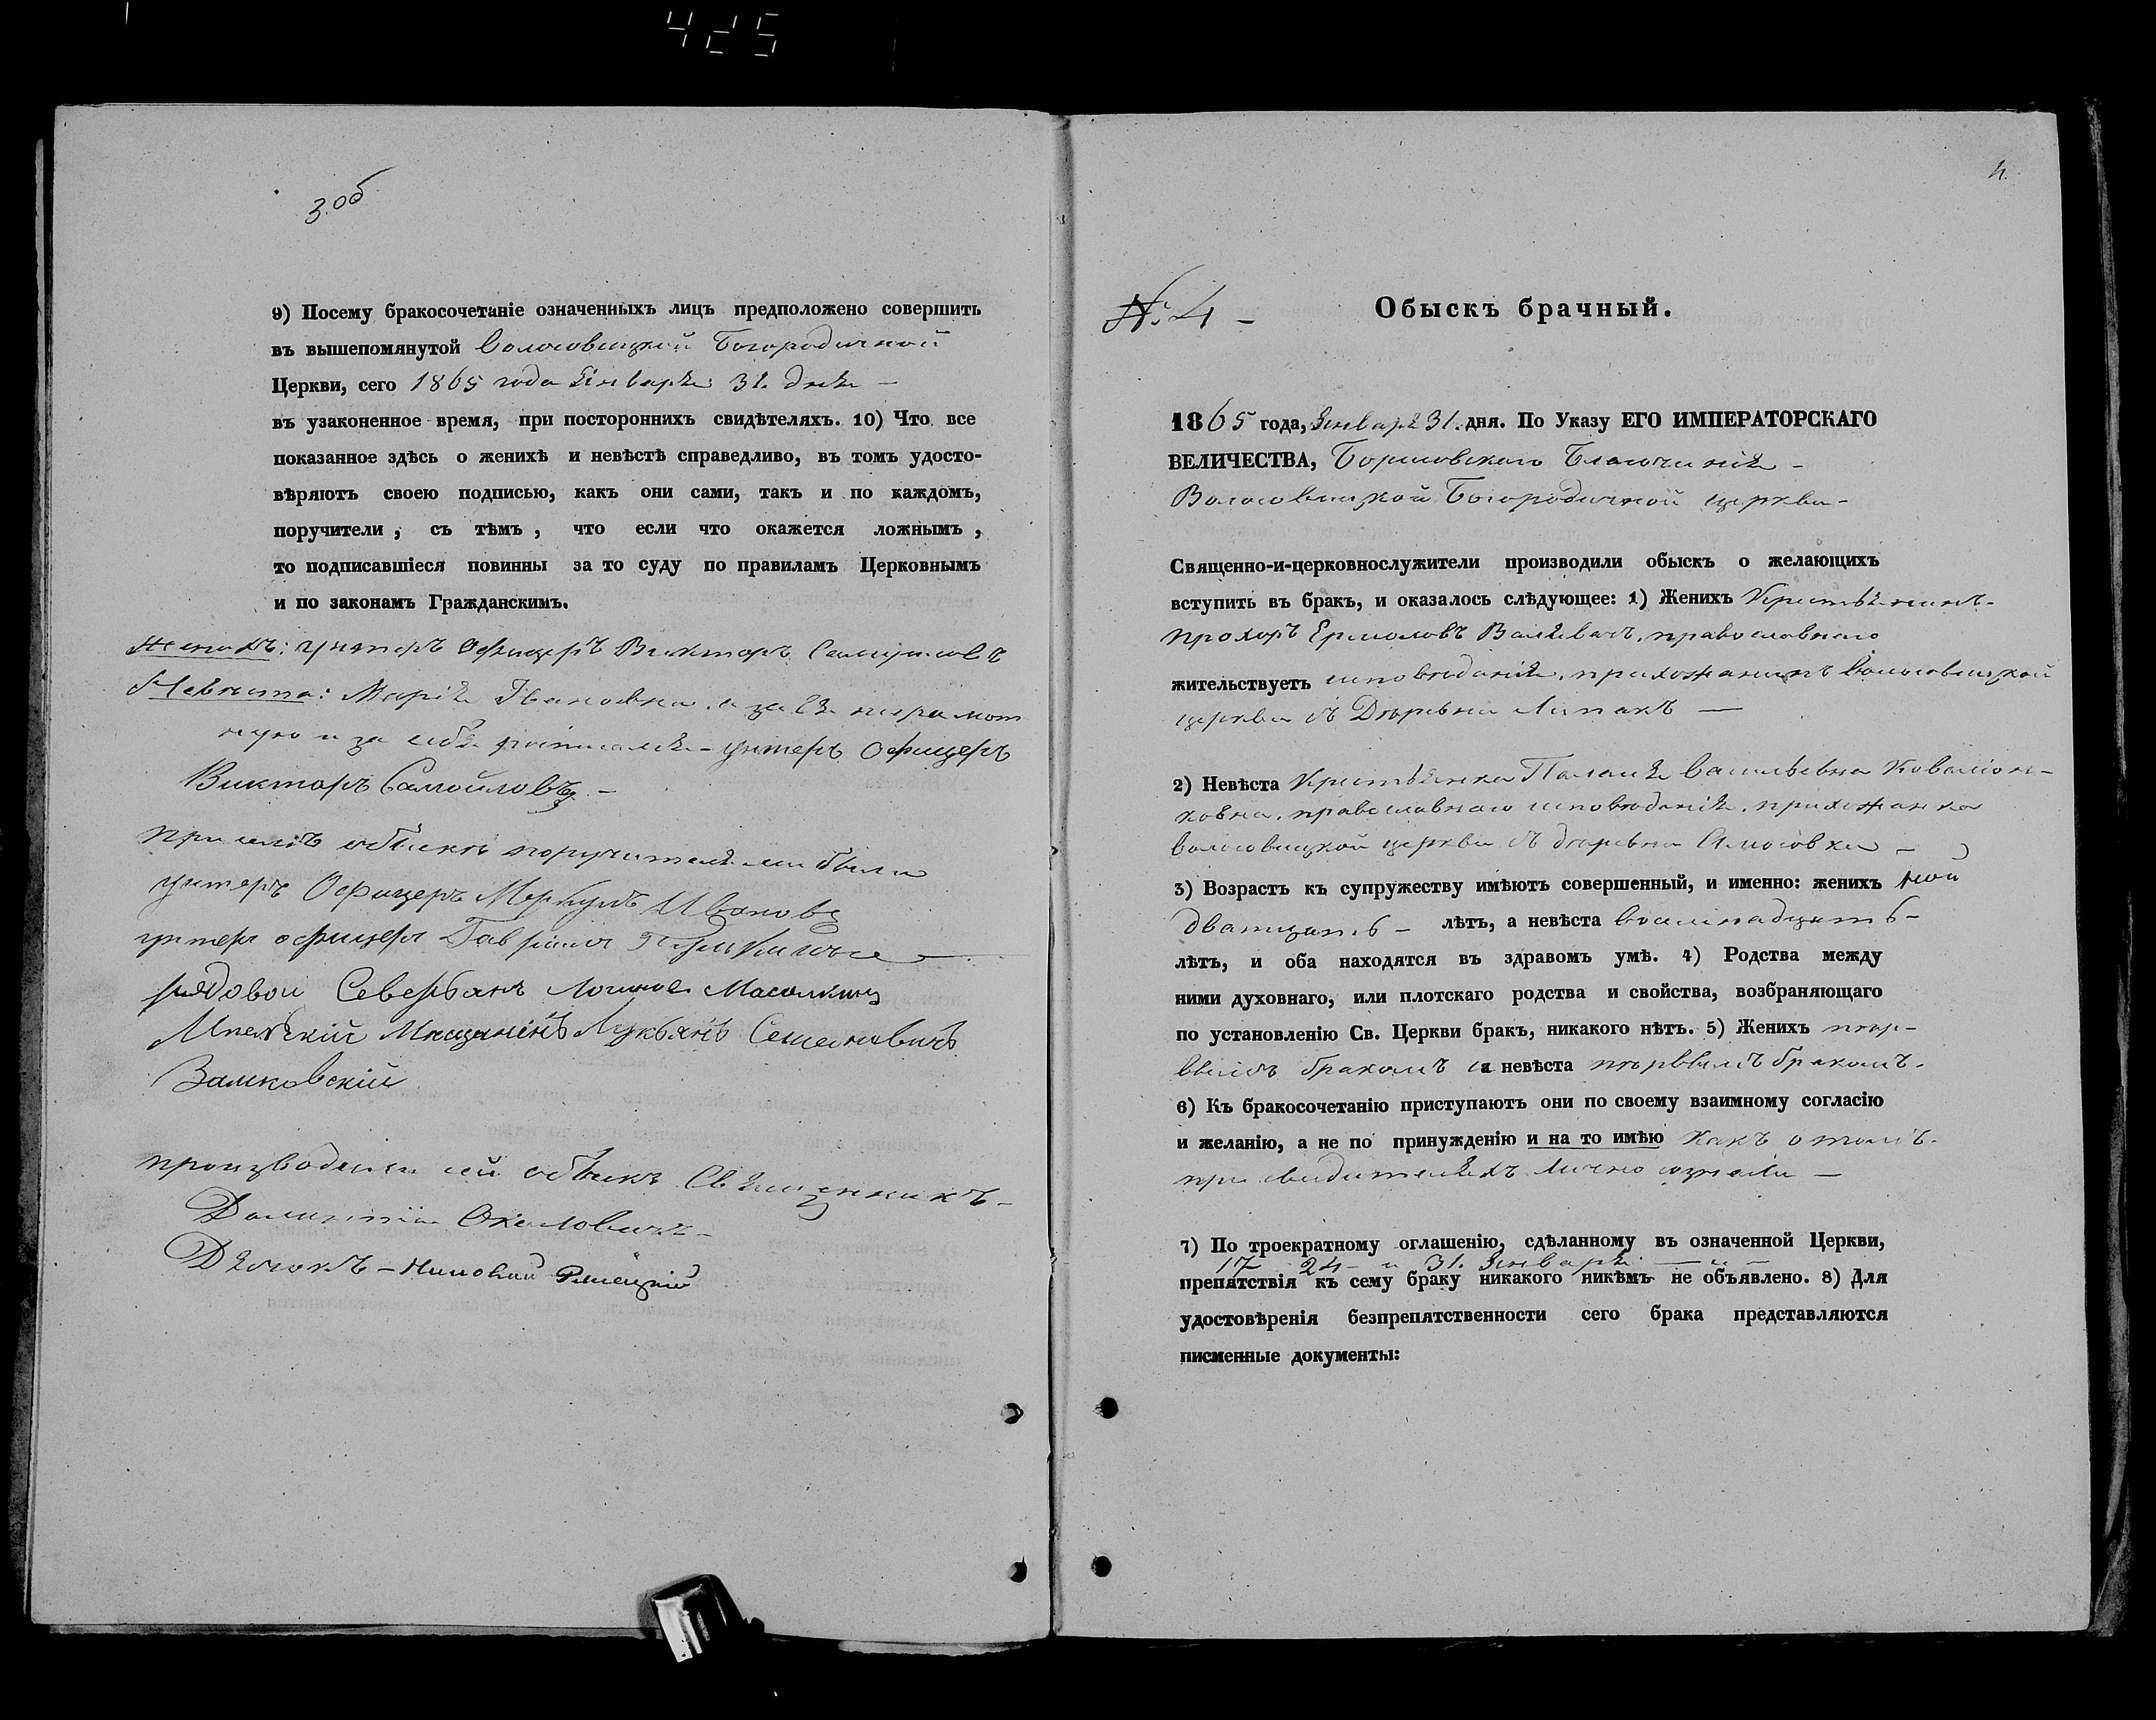 425
3.об
9) Посему бракосочетаніе означенныхъ лицъ предположено совершить
въ вышепомянутой Волосовицкой Богородичной
Церкви, сего 1865 года Января 31. дня –
въ узаконенное время, при постороннихъ свидѣтеляхъ. 10) Что все
показанное здѣсь о женихѣ и невѣстѣ справедливо, въ томъ удосто-
вѣряютъ своею подписью, какъ они сами, такъ и по каждомъ,
поручители, съ тѣмъ, что если что окажется ложнымъ,
то подписавшіеся повинны за то суду по правиламъ Церковнымъ
и по законамъ Гражданскимъ.
Женихъ: унтеръ Офицеръ Викторъ Самуиловъ
Невѣста: Марія Ивановна. а за ея неграмот
ную и за себя росписался – унтеръ Офицеръ
Викторъ Самойловъ –
При семъ обыскѣ поручителями были
унтеръ Офицеръ Меркулъ Ивановъ
унтеръ офицеръ Гаврилъ
рядовои Северьянъ Логинов
Мѣщанинъ Лукьянъ Семеновичъ
Замковскій
производили сей обыскъ Священникъ –
Околовичъ –
Дьячокъ –
4.
№. 4 –
Обыскъ брачный.
1865 года, Января 31. дня. По Указу ЕГО ИМПЕРАТОРСКАГО
ВЕЛИЧЕСТВА, Борисовскаго Благочинія –
Волосовицкой Богородичной церкви –
Священно-и-церковнослужители производили обыскъ о желающихъ
вступить въ бракъ, и оказалось слѣдующее: 1) Женихъ Крестьянинъ –
Прохоръ Ермоловъ православнаго
жительствуетъ исповѣданія, прихожанинъ Волосовицкой
церкви съ Дѣревни Липакъ —
2) Невѣста Крестьянка Палагія Васильевна Коваліон-
ковна, православнаго исповѣданія, прихожанка
Волосовицкой церкви съ дѣревни Амосовки –
3) Возрастъ къ супружеству имѣютъ совершенный, и именно: женихъ мой
дватцать – лѣтъ, а невѣста восемнадцать –
лѣтъ, и оба находятся въ здравомъ умѣ. 4) Родства между
ними духовнаго, или плотскаго родства и свойства, возбраняющаго
по установленію Св. Церкви бракъ, никакого нѣтъ. 5) Женихъ пѣр-
вымъ бракомъ а невѣста пѣрвымъ бракомъ.
6) Къ бракосочетанію приступаютъ они по своему взаимному согласію
и желанію, а не по принужденію и на то имѣю какъ о томъ
при свидителяхъ лично
7) По троекратному оглашенію, сдѣланному въ означенной Церкви,
17 24 – и 31. Января –
препятствія къ сему браку никакого никѣмъ не объявлено. 8) Для
удостовѣренія безпрепятственности сего брака представляются
писменные документы: